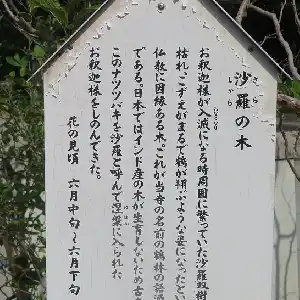 沙羅の木
さら
しゃら
お釈迦様が入滅になる時周囲に繁っていた沙羅双樹
にゅうめつ
枯れ、こずえがまるで鶴が翔ぶような姿になったと
仏教に因縁ある木。これが当寺の名前の鶴林の
である。日本ではインド産の木が生育しないため古
このナツツバキを沙羅と呼んで涅槃に入られた
お釈迦様をしのんできた。
花の見頃 六月中旬～六月下旬